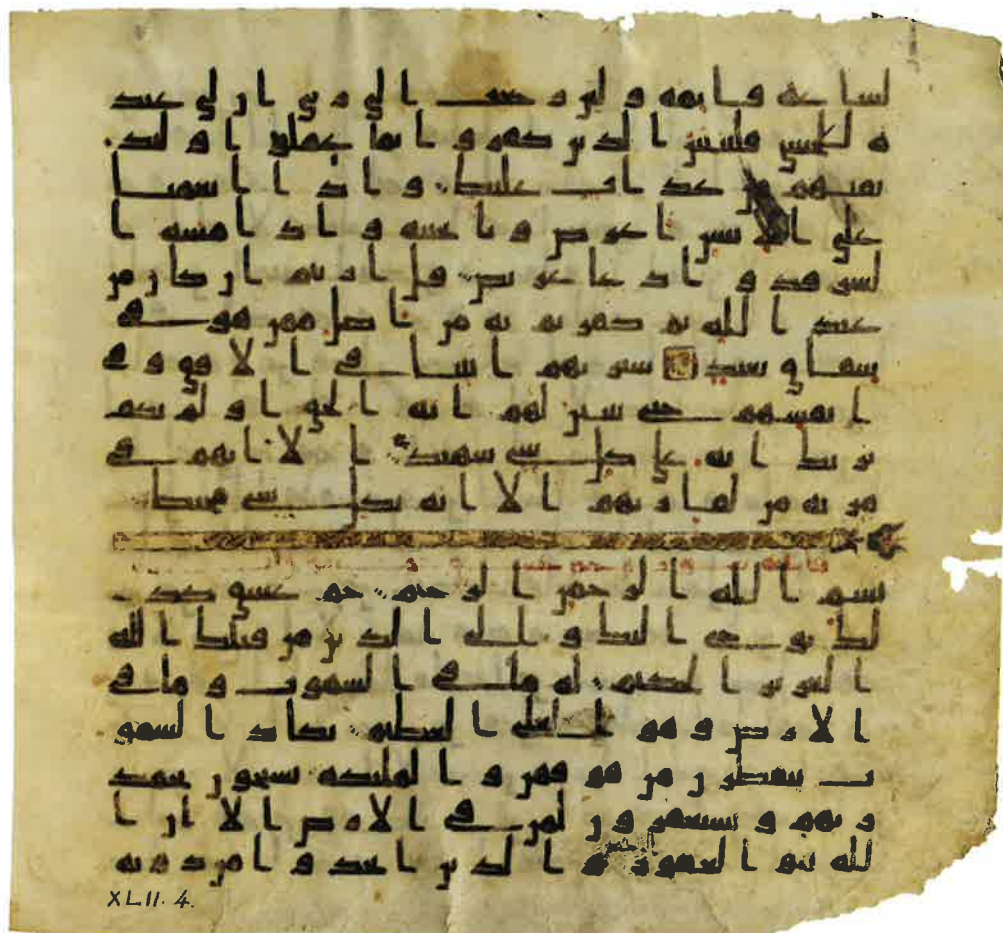 لساعة قايمة ولين رجعت الى ربي ان لي عند
ه للحسنى فلننبين الذين كفروا بما عملوا ولنذ
يقنهم من عذاب غليظ واذا انعمنا
على الانسن اعرض ونا بجنبه واذا مسه ا
لشر فذو دعا عريض قل اريتم ان كان من
عند الله ثم كفرتم به من اضل ممن هو في
شقاق بعيد سنريهم ايتنا في الافق وفي
انفسهم حتى يتبين لهم انه الحق اولم يكف
بربك انه على كل شي شهيد الا انهم في
مرية من لقا ربهم الا انه بكل شي محيط
بسم الله الرحمن الرحيم حم عسق كذ
لك يوحي اليك والى الذين من قبلك الله
العزيز الحكيم له ما في السموت وما في
الارض وهو العلي العظيم تكاد السمو
ت يتفطرن من فوقهن والمليكة يسبحون بحمد
ربهم ويستغفرون لمن في الارض الا ان ا
لله هو الغفور الرحيم والذين اتخذوا من دونه
XLII. 4.